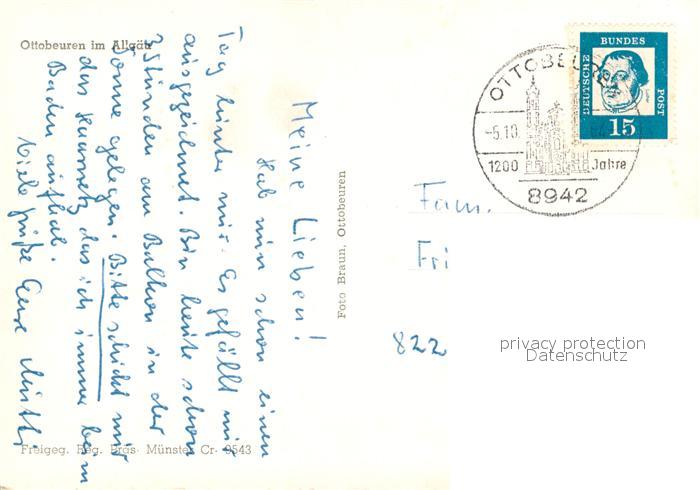 Ottobeuren im Allgäu
Meine Lieben!
Hab nun schon einen
Tag hinter mir. Es gefällt mir
ausgezeichnet. Bin heute schon
3 Stunden am Balkon in der
Sonne gelegen. Bitte schickt mir
das Haarnetz das ich immer beim
Baden aufhab.
Viele Grüße Eure Mutti
Freigeg. Reg. Präs. Münster Cr. 9543
Foto Braun, Ottobeuren
DEUTSCHE
BUNDES
POST
15
OTTOBEUREN
-5.10.
1200 Jahre
8942
Fam.
Fri
822
privacy protection
Datenschutz